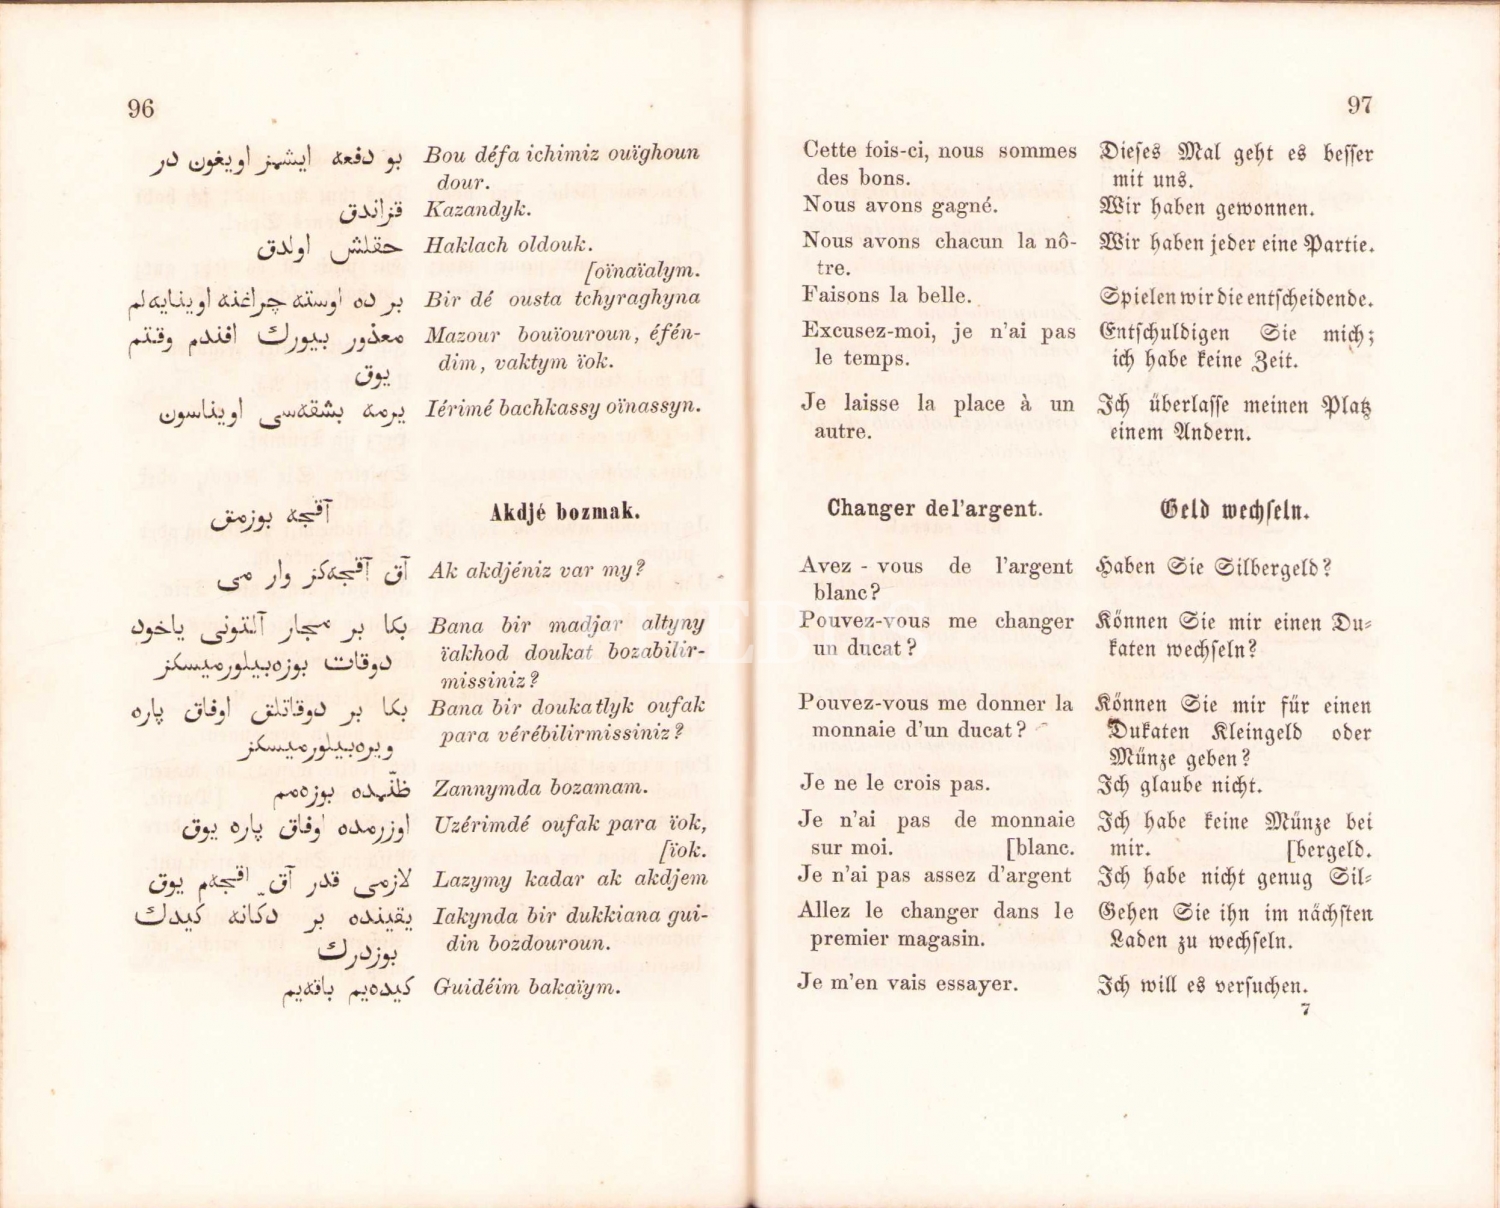 96
بو دفعه ایشمز اویغون در
Bou défa ichimiz ouïghoun
dour.
قزاندق
Kazandyk.
حقلش اولدق
Haklach oldouk.
[oïnaïalym.
بر ده اوسته چراغنه اوینایه‌لم
Bir dé ousta tchyraghyna
معذور بیورك افندم وقتم
یوق
Mazour bouïouroun, éfén-
dim, vaktym ïok.
یرمه بشقه‌سی اویناسون
Iérimé bachkassy oïnassyn.
آقچه بوزمق
Akdjé bozmak.
آق آقچه‌كز وار می
Ak akdjéniz var my?
بكا بر مجار آلتونی یاخود
دوقات بوزه‌بیلورمیسكز
Bana bir madjar altyny
ïakhod doukat bozabilir-
missiniz?
بكا بر دوقاتلق اوفاق پاره
ویره‌بیلورمیسكز
Bana bir doukatlyk oufak
para vérébilirmissiniz?
ظنّمده بوزه‌مم
Zannymda bozamam.
اوزرمده اوفاق پاره یوق
Uzérimdé oufak para ïok,
[ïok.
لازمی قدر آق اقچه‌م یوق
Lazymy kadar ak akdjem
یقینده بر دكانه كیدك
بوزدرك
Iakynda bir dukkiana gui-
din bozdouroun.
كیده‌یم باقه‌یم
Guidéim bakaïym.
97
Cette fois-ci, nous sommes
des bons.
Nous avons gagné.
Nous avons chacun la nô-
tre.
Faisons la belle.
Excusez-moi, je n'ai pas
le temps.
Je laisse la place à un
autre.
Changer del'argent.
Avez - vous de l'argent
blanc?
Pouvez-vous me changer
un ducat?
Pouvez-vous me donner la
monnaie d'un ducat?
Je ne le crois pas.
Je n'ai pas de monnaie
sur moi. [blanc.
Je n'ai pas assez d'argent
Allez le changer dans le
premier magasin.
Je m'en vais essayer.
Dieses Mal geht es besser
mit uns.
Wir haben gewonnen.
Wir haben jeder eine Partie.
Spielen wir die entscheidende.
Entschuldigen Sie mich;
ich habe keine Zeit.
Ich überlasse meinen Platz
einem Andern.
Geld wechseln.
Haben Sie Silbergeld?
Können Sie mir einen Du-
katen wechseln?
Können Sie mir für einen
Dukaten Kleingeld oder
Münze geben?
Ich glaube nicht.
Ich habe keine Münze bei
mir. [bergeld.
Ich habe nicht genug Sil-
Gehen Sie ihn im nächsten
Laden zu wechseln.
Ich will es versuchen.
7